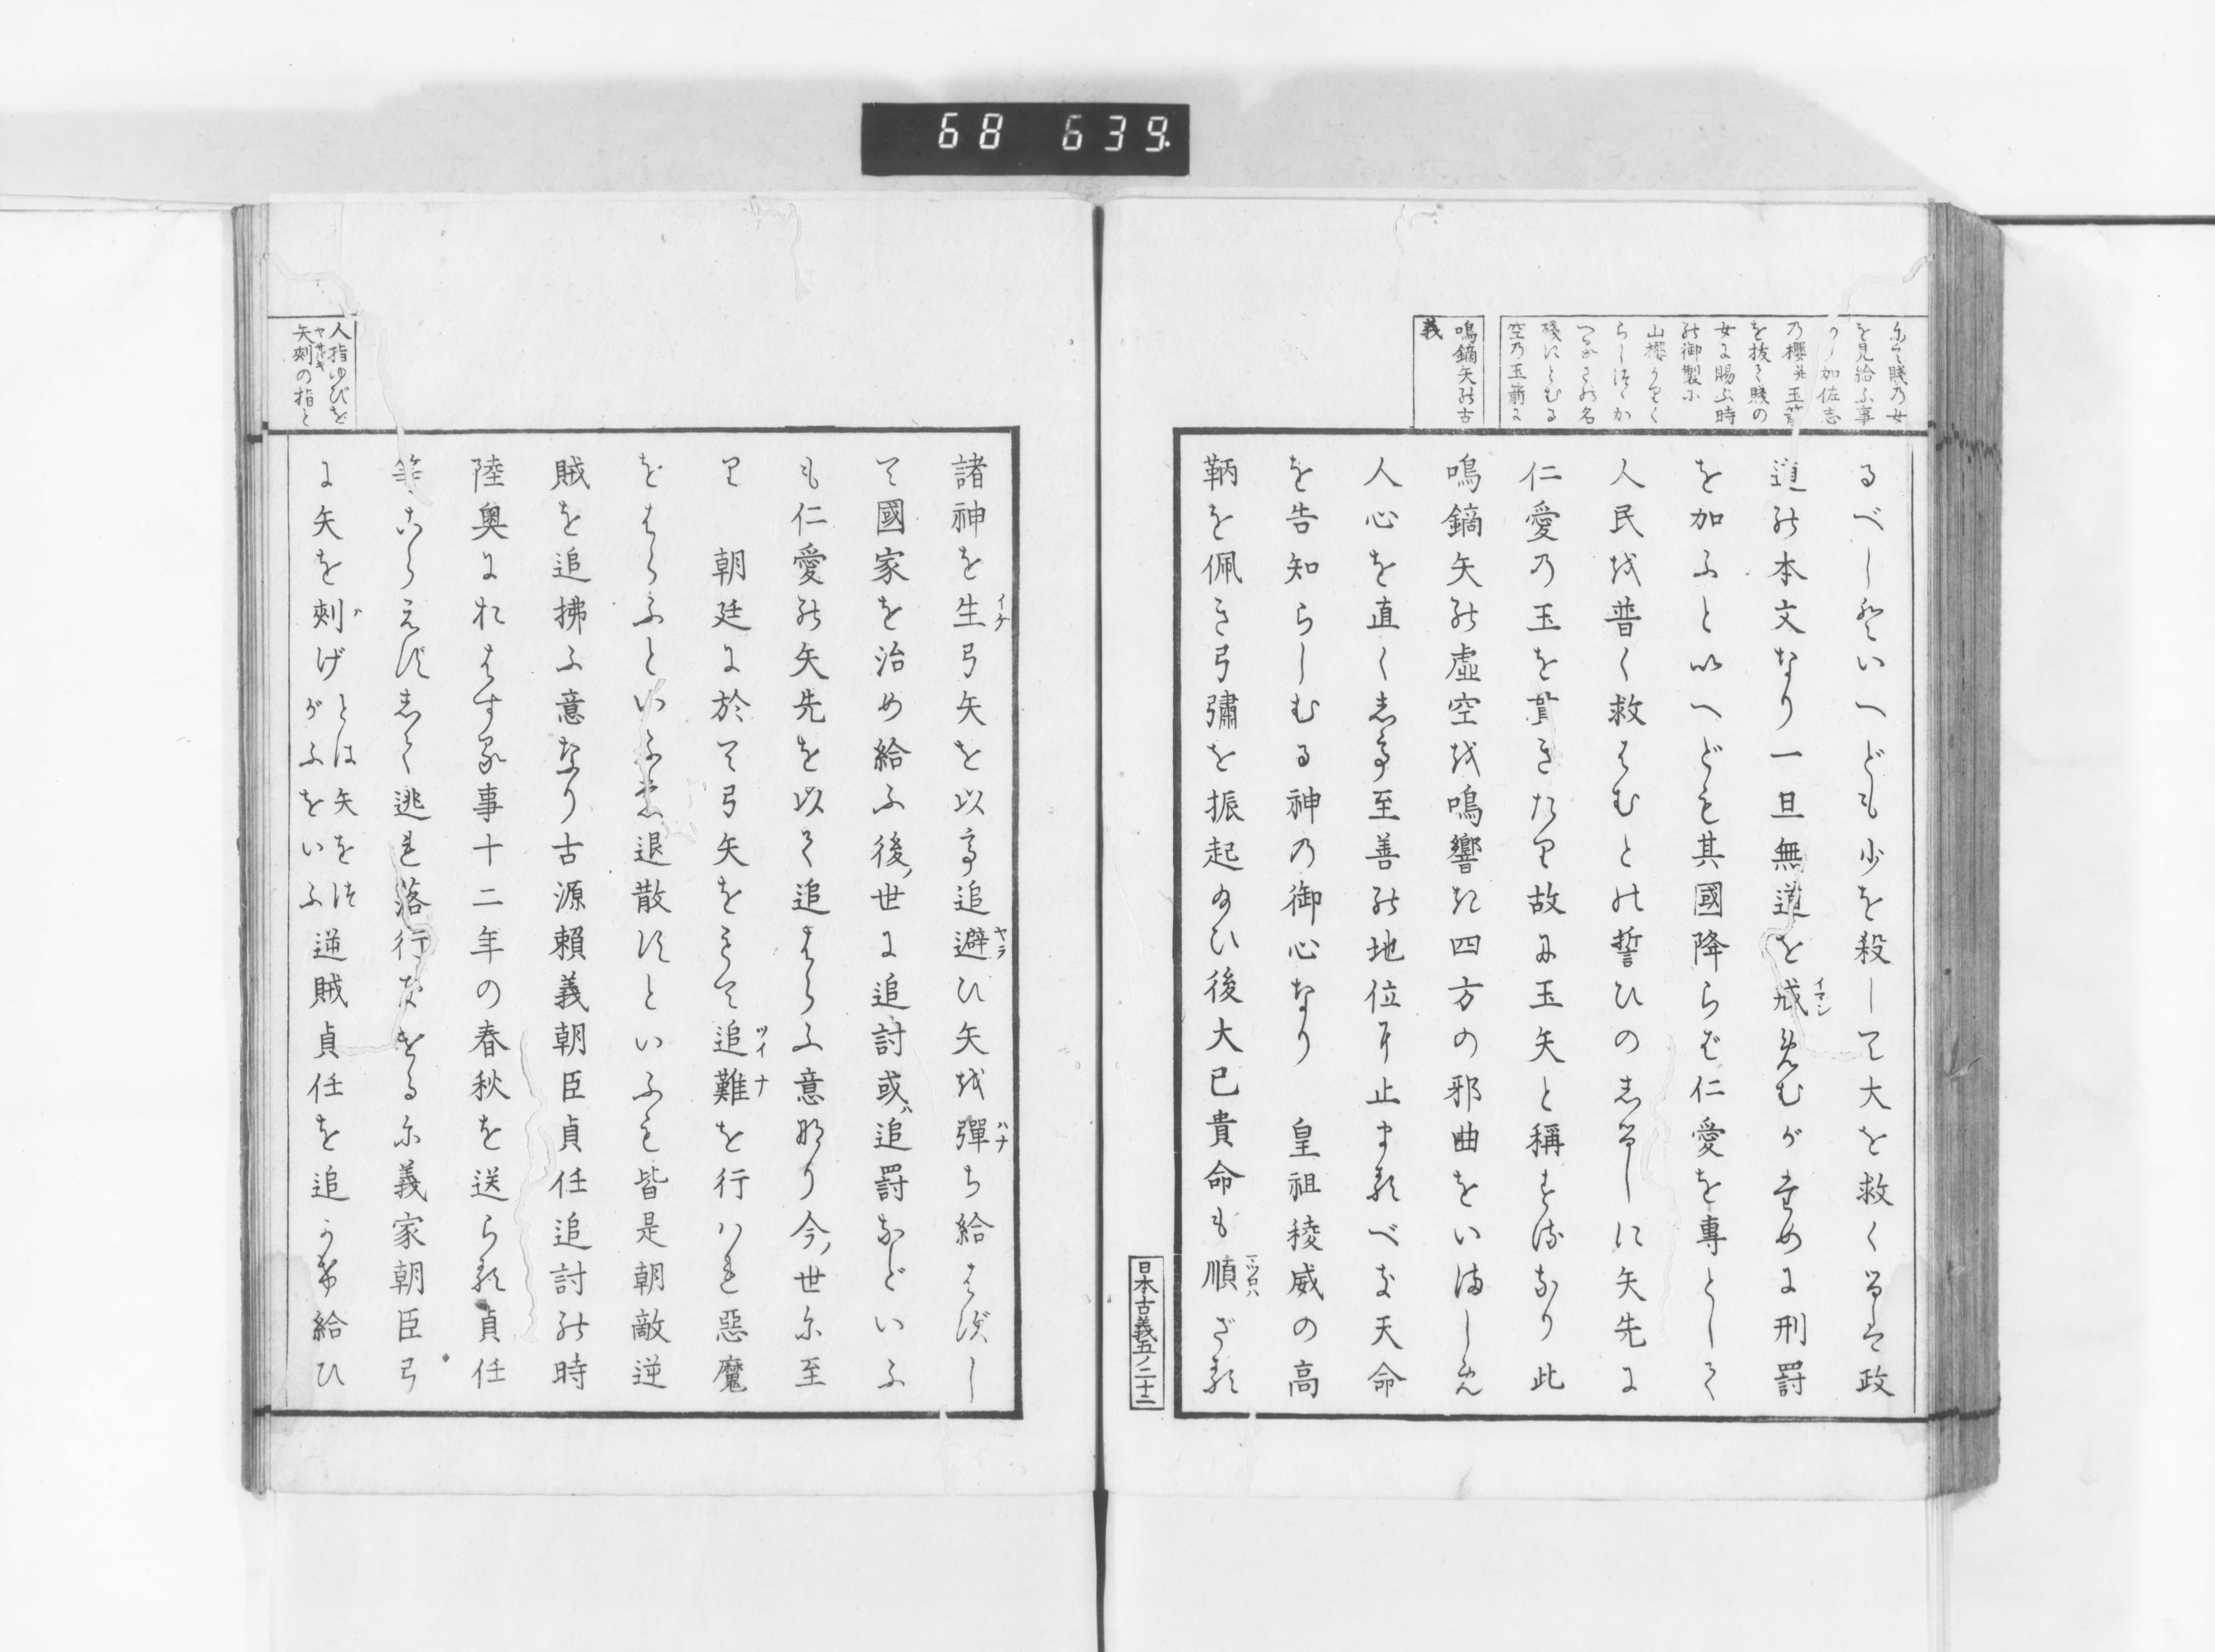 68 639.
尓て賤乃女
を見給ふ事
加佐志
乃櫻并玉箭
を抜て賤の
女に賜ふ時
の御製に
山櫻
らし
の名
残にとむる
空乃玉箭に
鳴鏑矢の古
義
るべしといへども少を殺して大を救くるは政
道の本文なり一旦無道を戒イマシめむが為めに刑罰
を加ふと以へども其國降らば仁愛を專として
人民を普く救はむとの誓ひのしるしに矢先に
仁愛乃玉を貫きたり故に玉矢と稱するなり此
鳴鏑矢の虚空を鳴響き四方の邪曲をいましめ
人心を直くして至善の地位に止まるべき天命
を告知らしむる神の御心なり 皇祖稜威の高
鞆を佩き弓彇を振起給ひ後大已貴命も順マツロハざる
日本古義五ノ二十二
諸神を生イク弓矢を以て追避ヤラひ矢を彈ハナち給はずし
て國家を治め給ふ後ノ世に追討或ハ追罰などいふ
も仁愛の矢先を以て追はらふ意なり今ノ世に至
り 朝廷に於て弓矢をもて追難ツイナを行ハれ惡魔
をはらふといふも退散すといふも皆是朝敵逆
賊を追拂ふ意なり古源頼義朝臣貞任追討の時
陸奥におはする事十二年の春秋を送らる貞任
等こらえずして逃れ落行きける尓義家朝臣弓
に矢を刺ハげ とは矢をつがふをいふ 逆賊貞任を追かけ給ひ
人指ゆびを
矢刺の指と